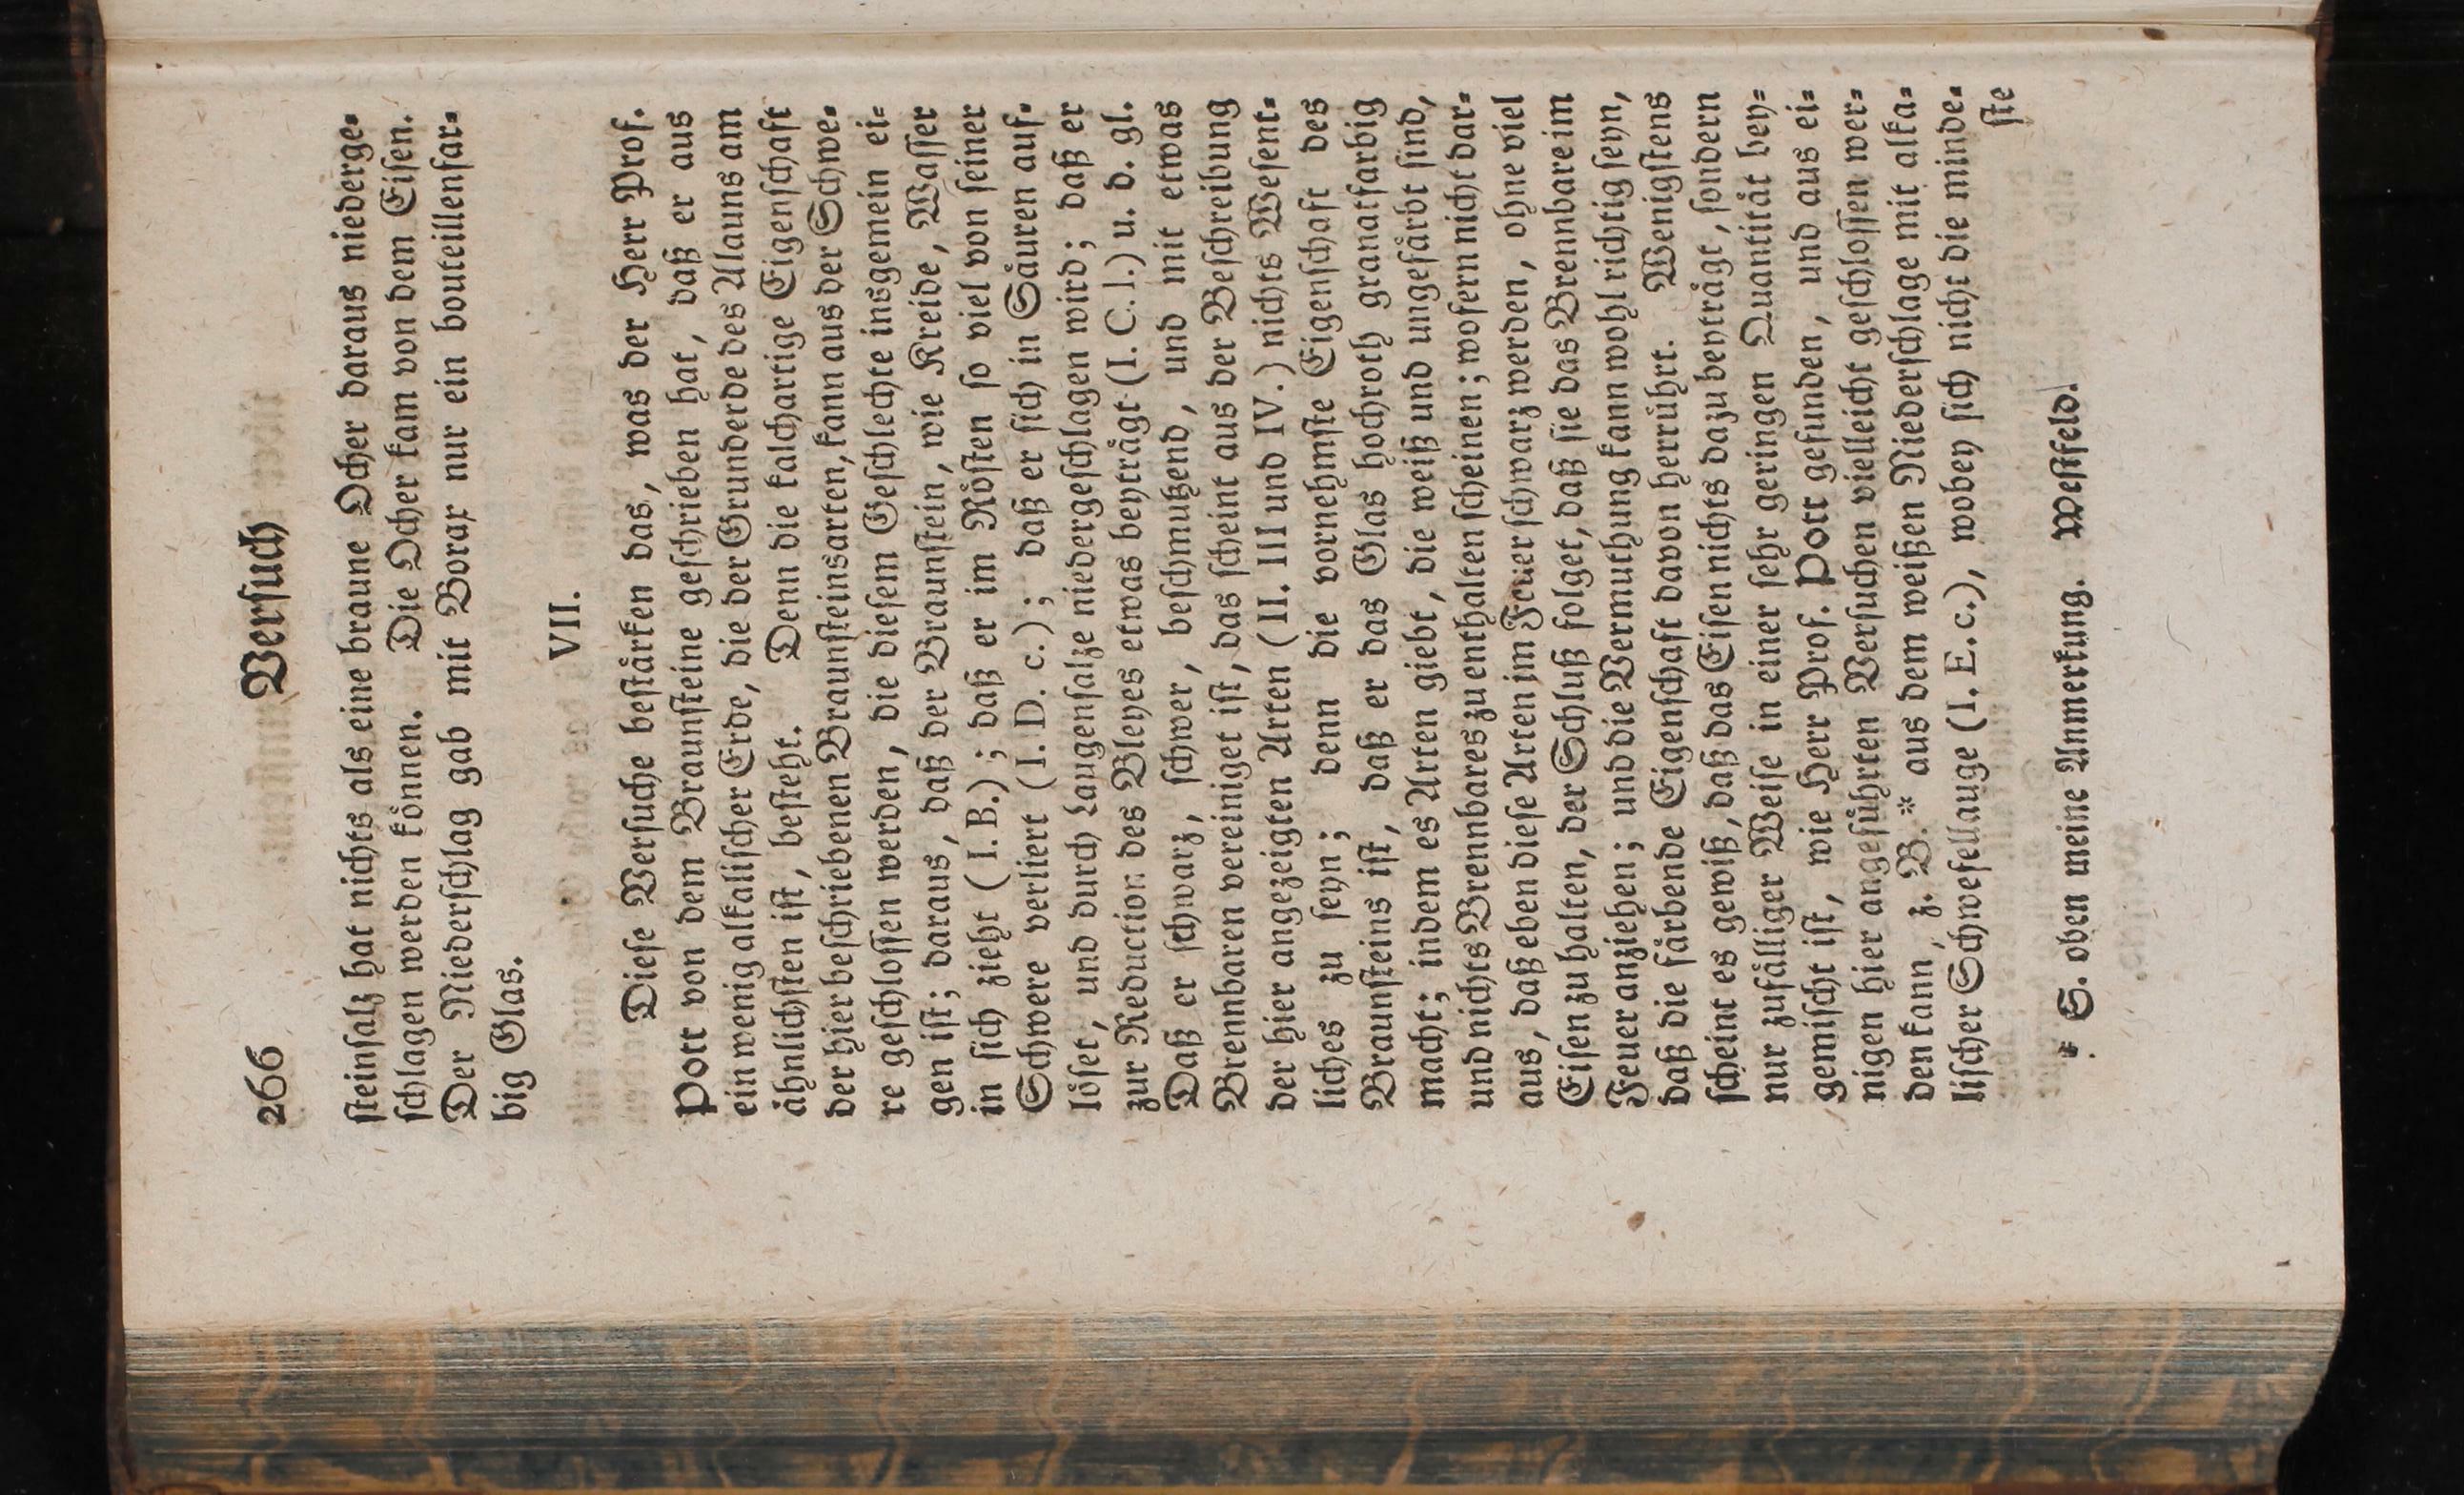 266 Versuch
steinsalz hat nichts als eine braune Ocher daraus niederge-
schlagen werden können. Die Ocher kam von dem Eisen.
Der Niederschlag gab mit Borax nur ein bouteillenfar-
big Glas.
VII.
Diese Versuche bestärken das, was der Herr Prof.
Pott von dem Braunsteine geschrieben hat, daß er aus
ein wenig alkalischer Erde, die der Grunderde des Alauns am
ähnlichsten ist, besteht. Denn die kalchartige Eigenschaft
der hier beschriebenen Braunsteinsarten, kann aus der Schwe-
re geschlossen werden, die diesem Geschlechte insgemein ei-
gen ist; daraus, daß der Braunstein, wie Kreide, Wasser
in sich zieht (I. B.); daß er im Rösten so viel von seiner
Schwere verliert (I. D. c.); daß er sich in Säuren auf-
löset, und durch Laugensalze niedergeschlagen wird; daß er
zur Reduction des Bleyes etwas beyträgt (I. C. l.) u. d. gl.
Daß er schwarz, schwer, beschmutzend, und mit etwas
Brennbaren vereiniget ist, das scheint aus der Beschreibung
der hier angezeigten Arten (II. III und IV.) nichts Wesent-
liches zu seyn; denn die vornehmste Eigenschaft des
Braunsteins ist, daß er das Glas hochroth granatfarbig
macht; indem es Arten giebt, die weiß und ungefärbt sind,
und nichts Brennbares zu enthalten scheinen; wofern nicht dar-
aus, daß eben diese Arten im Feuer schwarz werden, ohne viel
Eisen zu halten, der Schluß folget, daß sie das Brennbare im
Feuer anziehen; und die Vermuthung kann wohl richtig seyn,
daß die färbende Eigenschaft davon herrührt. Wenigstens
scheint es gewiß, daß das Eisen nichts dazu beyträgt, sondern
nur zufälliger Weise in einer sehr geringen Quantität bey-
gemischt ist, wie Herr Prof. Pott gefunden, und aus ei-
nigen hier angeführten Versuchen vielleicht geschlossen wer-
den kann, z. B.* aus dem weißen Niederschlage mit alka-
lischer Schwefellauge (I. E. c.), wobey sich nicht die minde-
ste
* S. oben meine Anmerkung. Westfeld.